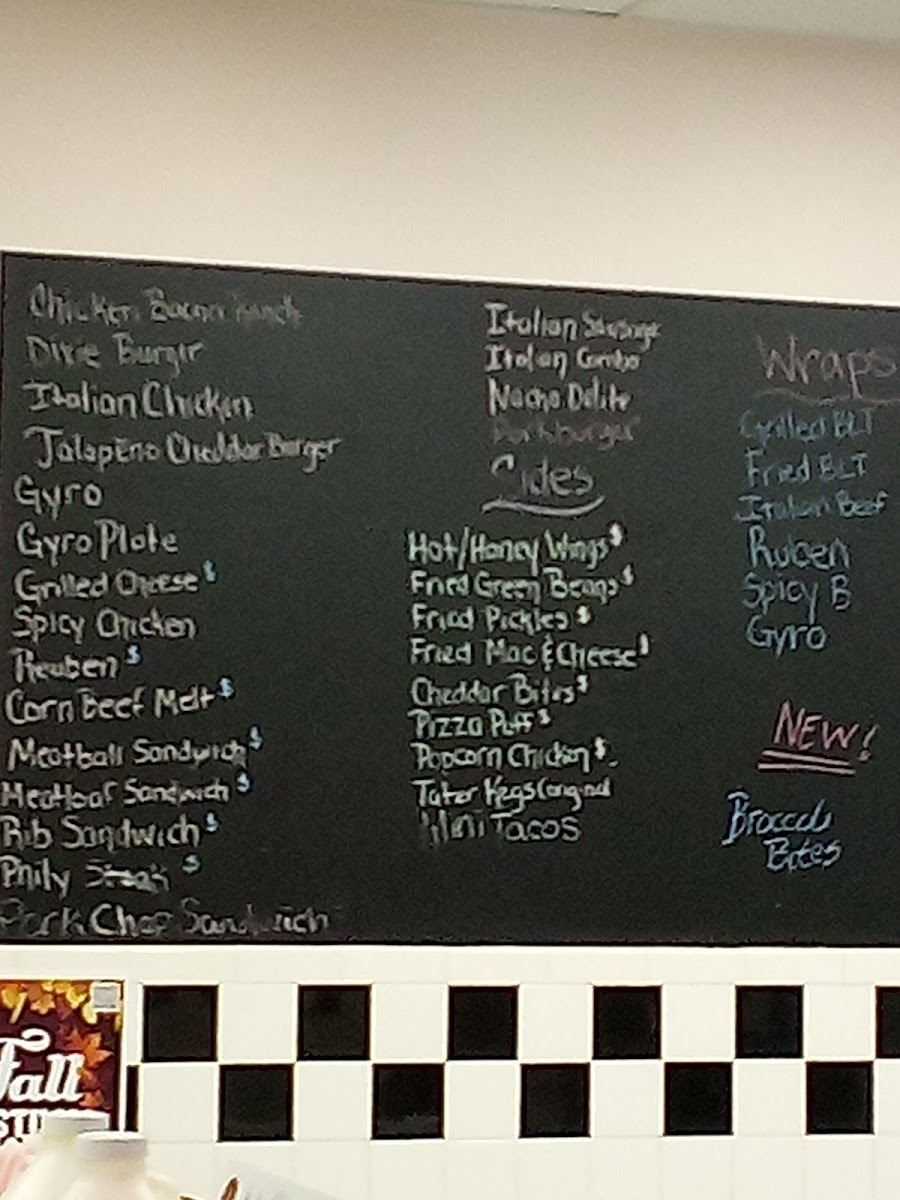 Chicken Bacon Ranch
Dixie Burger
Italian Chicken
Jalapeno Cheddar Burger
Gyro
Gyro Plate
Grilled Cheese $
Spicy Chicken
Reuben $
Corn Beef Melt $
Meatball Sandwich $
Meatloaf Sandwich $
Rib Sandwich $
Philly Steak $
Pork Chop Sandwich
Italian Sausage
Italian Combo
Nacho Delite
Porkburger
Sides
Hot/Honey Wings $
Fried Green Beans $
Fried Pickles $
Fried Mac & Cheese $
Cheddar Bites $
Pizza Puff $
Popcorn Chicken $.
Tater Kegs (original
Mini Tacos
Wraps
Grilled BLT
Fried BLT
Italian Beef
Ruben
Spicy B
Gyro
NEW!
Broccoli
Bites
Fall